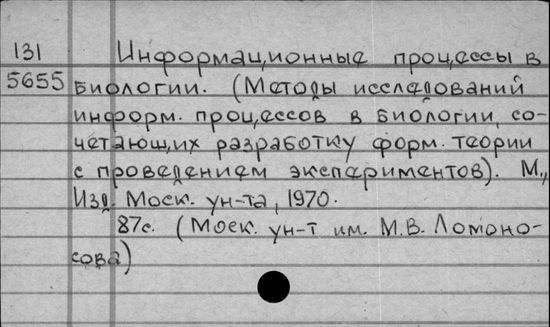 131 Информационные процессы в
5655 биологии. (Методы исследований
информ. процессов в биологии, со-
четающих разработку форм. теории
с проведением экспериментов). М.,
Изд. Моск. ун-та, 1970.
87с. (Моск. ун-т им. М.В. Ломоно-
сова)